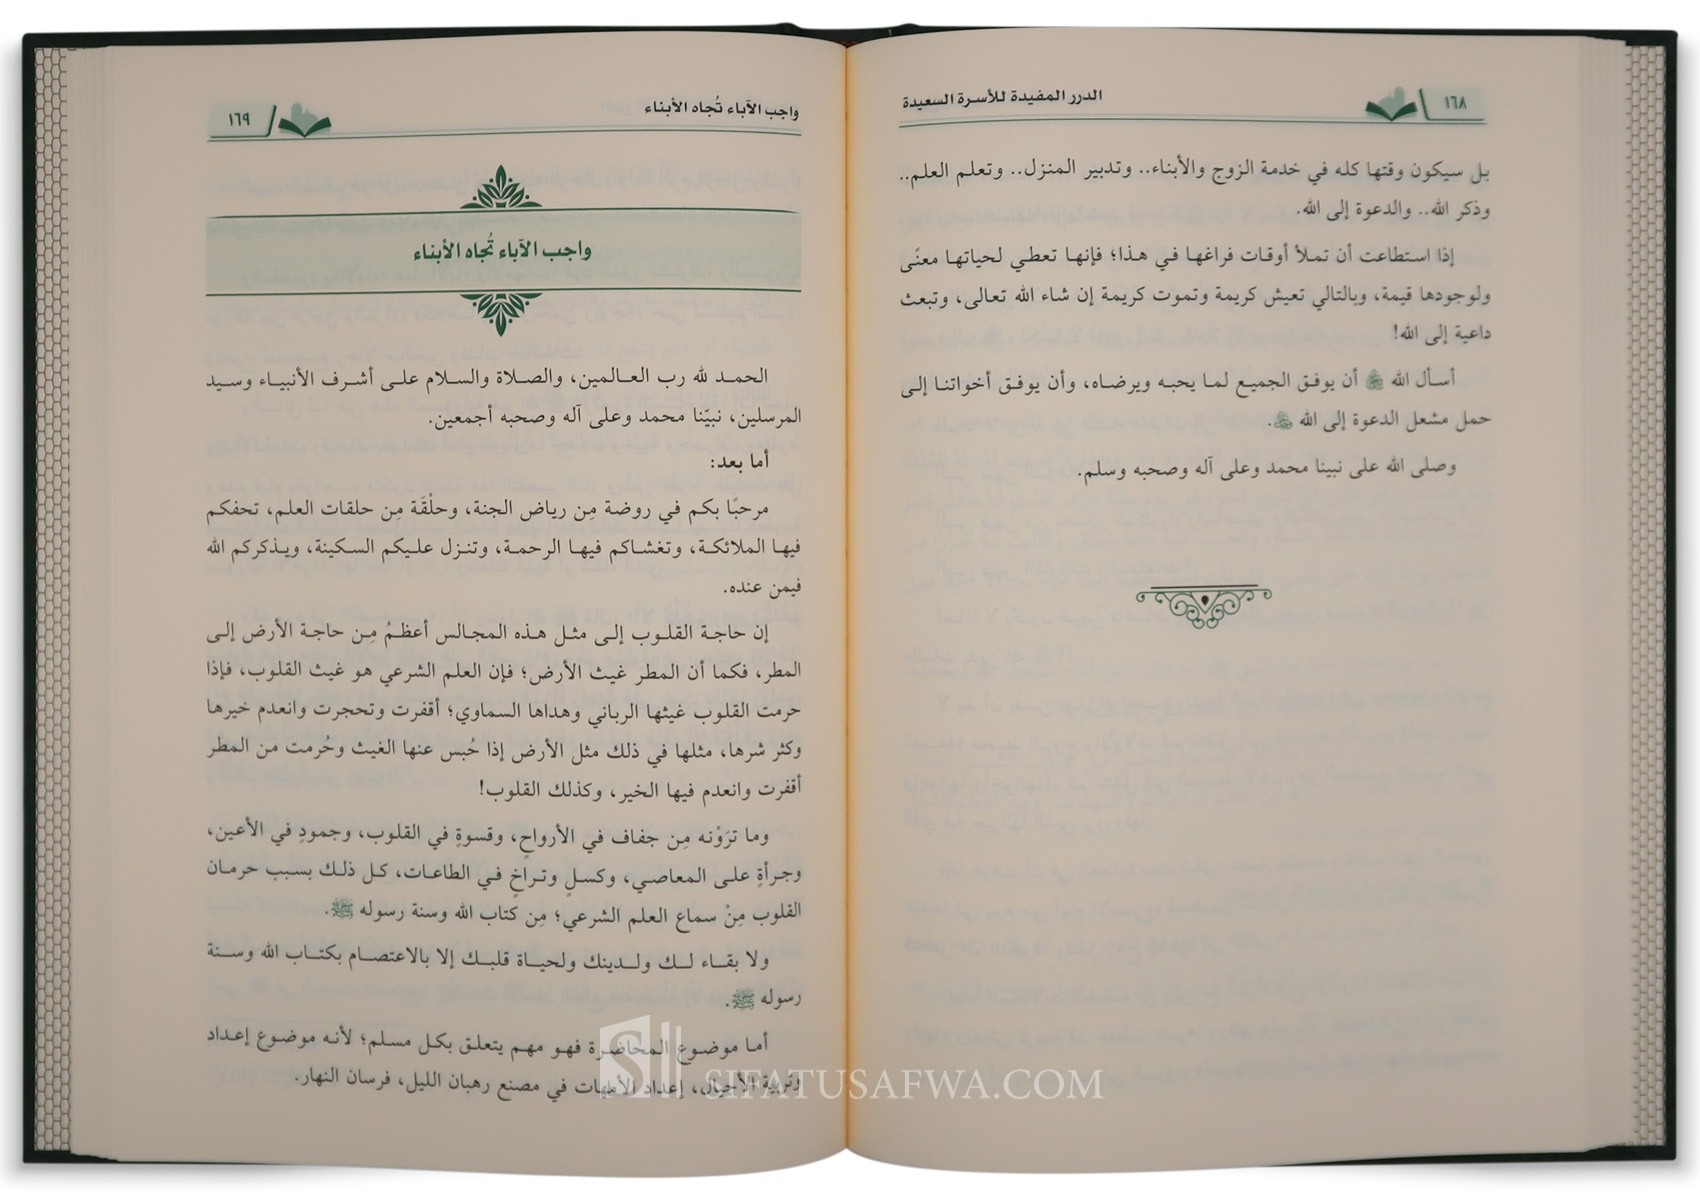 ١٦٨
الدرر المفيدة للأسرة السعيدة
بل سيكون وقتها كله في خدمة الزوج والأبناء.. وتدبير المنزل.. وتعلم العلم..
وذكر الله.. والدعوة إلى الله.
إذا استطاعت أن تملأ أوقات فراغها في هذا؛ فإنها تعطي لحياتها معنًى
ولوجودها قيمة، وبالتالي تعيش كريمة وتموت كريمة إن شاء الله تعالى، وتبعث
داعية إلى الله!
أسأل الله ﷻ أن يوفق الجميع لما يحبه ويرضاه، وأن يوفق أخواتنا إلى
حمل مشعل الدعوة إلى الله ﷻ.
وصلى الله على نبينا محمد وعلى آله وصحبه وسلم.
واجب الآباء تُجاه الأبناء
١٦٩
واجب الآباء تُجاه الأبناء
الحمد لله رب العالمين، والصلاة والسلام على أشرف الأنبياء وسيد
المرسلين، نبيّنا محمد وعلى آله وصحبه أجمعين.
أما بعد:
مرحبًا بكم في روضة مِن رياض الجنة، وحلْقَة مِن حلقات العلم، تحفكم
فيها الملائكة، وتغشاكم فيها الرحمة، وتنزل عليكم السكينة، ويذكركم الله
فيمن عنده.
إن حاجة القلوب إلى مثل هذه المجالس أعظمُ مِن حاجة الأرض إلى
المطر، فكما أن المطر غيث الأرض؛ فإن العلم الشرعي هو غيث القلوب، فإذا
حرمت القلوب غيثها الرباني وهداها السماوي؛ أقفرت وتحجرت وانعدم خيرها
وكثر شرها، مثلها في ذلك مثل الأرض إذا حُبس عنها الغيث وحُرمت من المطر
أقفرت وانعدم فيها الخير، وكذلك القلوب!
وما ترَوْنه مِن جفاف في الأرواحِ، وقسوةٍ في القلوب، وجمودٍ في الأعين،
وجرأةٍ على المعاصي، وكسلٍ وتراخٍ في الطاعات، كل ذلك بسبب حرمان
القلوب مِنْ سماع العلم الشرعي؛ مِن كتاب الله وسنة رسوله ﷺ.
ولا بقاء لك ولدينك ولحياة قلبك إلا بالاعتصام بكتاب الله وسنة
رسوله ﷺ.
أما موضوع المحاضرة فهو مهم يتعلق بكل مسلم؛ لأنه موضوع إعداد
وتربية الأجيال، إعداد الأمهات في مصنع رهبان الليل، فرسان النهار.
SIFATUSAFWA.COM